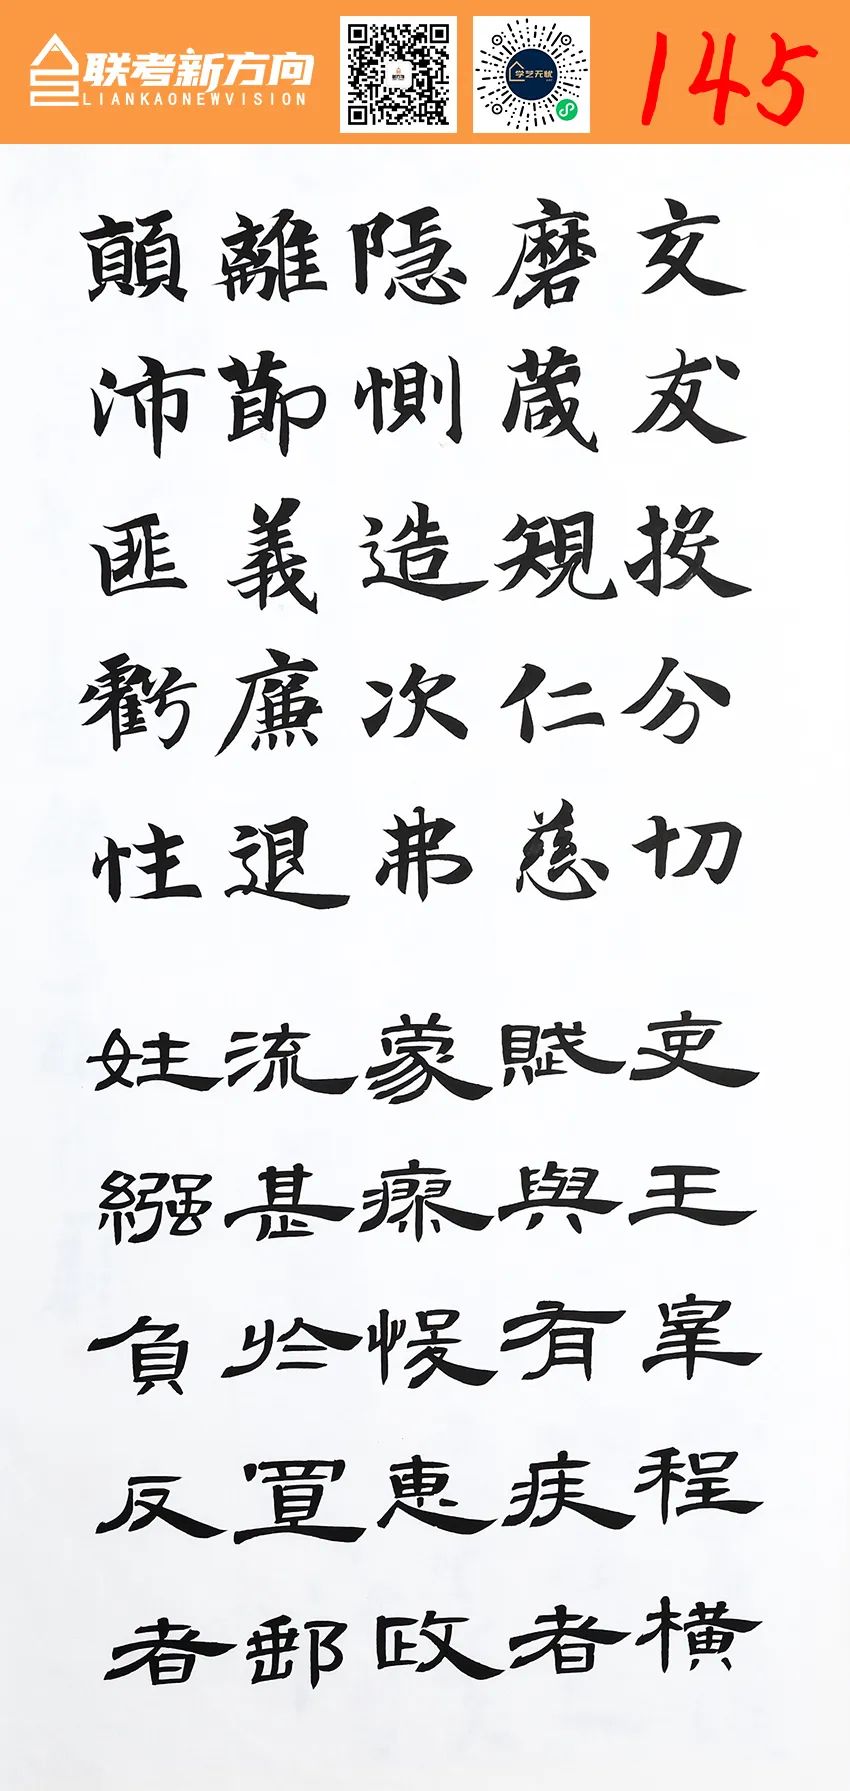 联考新方向
LIANKAONEWVISION
学艺无忧
145
交友投分切
磨箴規仁慈
隐惻造次弗
離節義廉退
顛沛匪虧性
吏王宰程横
賦與有疾者
蒙瘳悛惠政
流甚於置郵
姓繦負反者